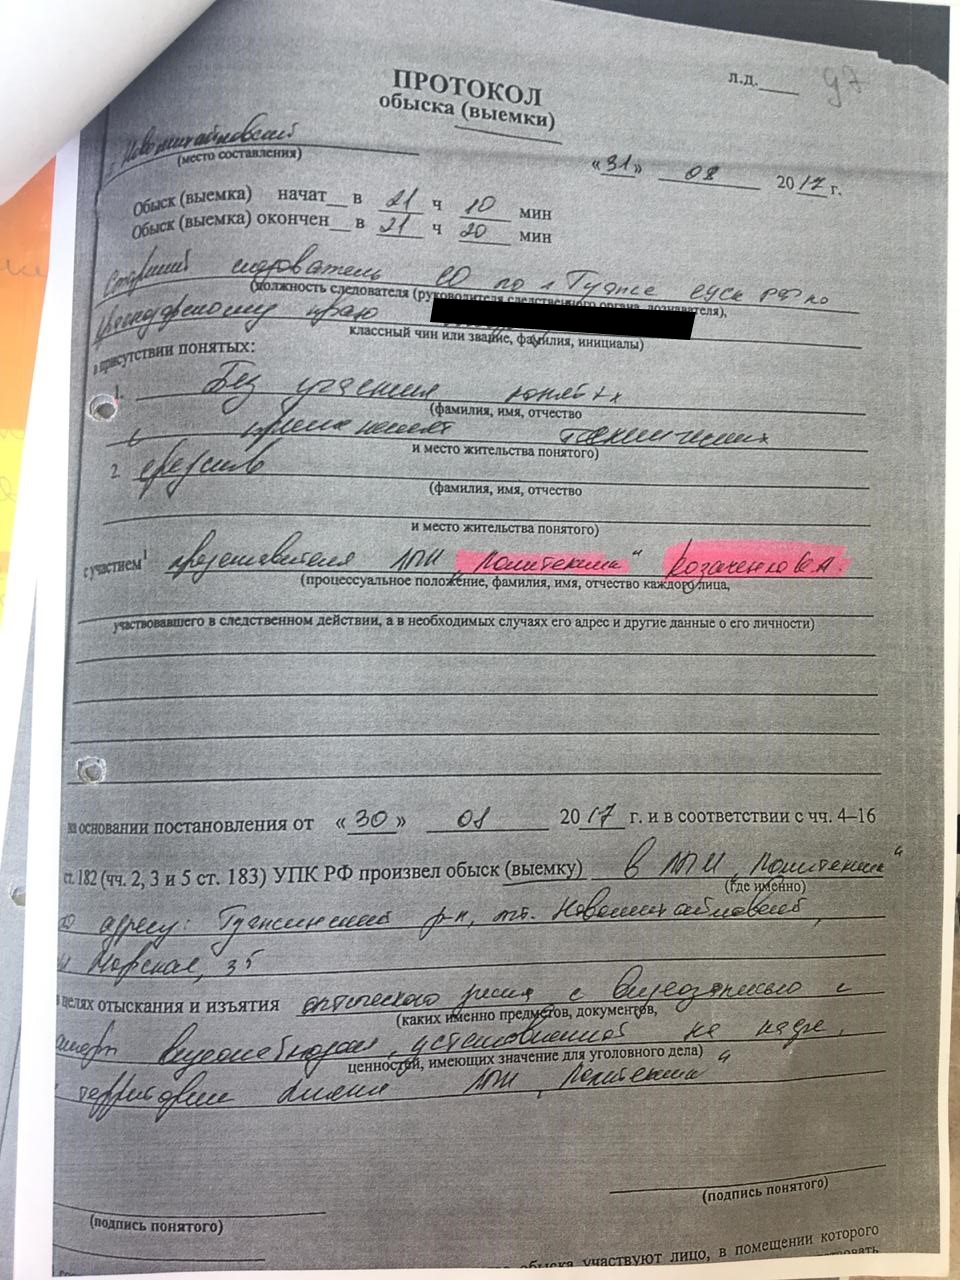 л.д.____ 97
ПРОТОКОЛ
обыска (выемки)
Новомихайловский
(место составления)
«31» 08 2017 г.
Обыск (выемка) начат__ в 21 ч 10 мин
Обыск (выемка) окончен__ в 21 ч 20 мин
Старший следователь СО по г. Туапсе СУ СК РФ по
(должность следователя (руководителя следственного органа, дознавателя),
Краснодарскому краю
классный чин или звание, фамилия, инициалы)
в присутствии понятых:
1. Без участия понятых
(фамилия, имя, отчество
с применением технических
и место жительства понятого)
2. средств
(фамилия, имя, отчество
и место жительства понятого)
с участием¹ представителя "Политехник" Козаченко
(процессуальное положение, фамилия, имя, отчество каждого лица,
участвовавшего в следственном действии, а в необходимых случаях его адрес и другие данные о его личности)
на основании постановления от «30» 08 2017 г. и в соответствии с чч. 4–16
ст. 182 (чч. 2, 3 и 5 ст. 183) УПК РФ произвел обыск (выемку) в "Политехник"
(где именно)
по адресу: Туапсинский р-н, пгт. Новомихайловский,
Морская, 35
в целях отыскания и изъятия оптического диска с видеозаписью с
(каких именно предметов, документов,
камер видеонаблюдения, установленной на
ценностей, имеющих значение для уголовного дела)
территории "Политехник"
(подпись понятого)
(подпись понятого)
обыска участвуют лицо, в помещении которого